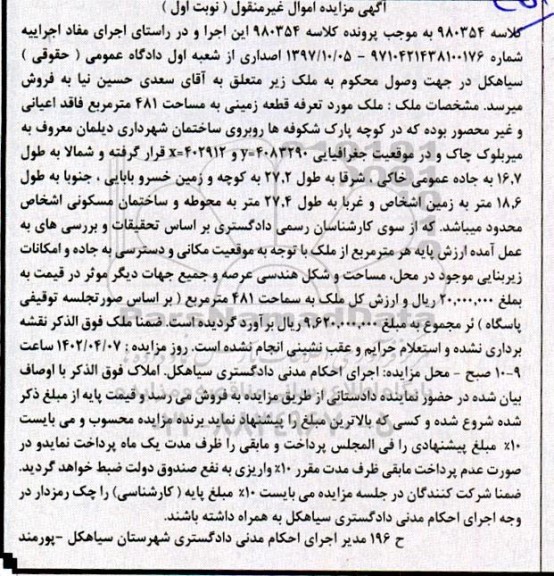 آگهی مزایده اموال غیرمنقول ( نوبت اول )
کلاسه ۹۸۰۳۵۴ به موجب پرونده کلاسه ۹۸۰۳۵۴ این اجرا و در راستای اجرای مفاد اجراییه
شماره ۹۷۱۰۴۲۱۴۳۸۱۰۰۱۷۶ – ۱۳۹۷/۱۰/۰۵ اصداری از شعبه اول دادگاه عمومی ( حقوقی )
سیاهکل در جهت وصول محکوم به ملک زیر متعلق به آقای سعدی حسین نیا به فروش
میرسد. مشخصات ملک : ملک مورد تعرفه قطعه زمینی به مساحت ۴۸۱ مترمربع فاقد اعیانی
و غیر محصور بوده که در کوچه پارک شکوفه ها روبروی ساختمان شهرداری دیلمان معروف به
میربلوک چاک و در موقعیت جغرافیایی y=۴۰۸۳۲۹۰ و x=۴۰۲۹۱۲ قرار گرفته و شمالا به طول
۱۶.۷ به جاده عمومی خاکی ، شرقا به طول ۲۷.۲ به کوچه و زمین خسرو بابایی ، جنوبا به طول
۱۸.۶ متر به زمین اشخاص و غربا به طول ۲۷.۴ متر به محوطه و ساختمان مسکونی اشخاص
محدود میباشد. که از سوی کارشناسان رسمی دادگستری بر اساس تحقیقات و بررسی های به
عمل آمده ارزش پایه هر مترمربع از ملک با توجه به موقعیت مکانی و دسترسی به جاده و امکانات
زیربنایی موجود در محل، مساحت و شکل هندسی عرصه و جمیع جهات دیگر موثر در قیمت به
بمبلغ ۲۰,۰۰۰,۰۰۰ ریال و ارزش کل ملک به سماحت ۴۸۱ مترمربع ( بر اساس صورتجلسه توقیفی
پاسگاه ) نُر مجموع به مبلغ ۹,۶۲۰,۰۰۰,۰۰۰ ریال برآورد گردیده است. ضمنا ملک فوق الذکر نقشه
برداری نشده و استعلام جرایم و عقب نشینی انجام نشده است. روز مزایده : ۱۴۰۲/۰۴/۰۷ ساعت
۹-۱۰ صبح – محل مزایده: اجرای احکام مدنی دادگستری سیاهکل. املاک فوق الذکر با اوصاف
بیان شده در حضور نماینده دادستانی از طریق مزایده به فروش می رسد و قیمت پایه از مبلغ ذکر
شده شروع شده و کسی که بالاترین مبلغ را پیشنهاد نماید برنده مزایده محسوب و می بایست
۱۰٪ مبلغ پیشنهادی را فی المجلس پرداخت و مابقی را ظرف مدت یک ماه پرداخت نمایدو در
صورت عدم پرداخت مابقی ظرف مدت مقرر ۱۰٪ واریزی به نفع صندوق دولت ضبط خواهد گردید.
ضمنا شرکت کنندگان در جلسه مزایده می بایست ۱۰٪ مبلغ پایه ( کارشناسی) را چک رمزدار در
وجه اجرای احکام مدنی دادگستری سیاهکل به همراه داشته باشند.
ح ۱۹۶ مدیر اجرای احکام مدنی دادگستری شهرستان سیاهکل –پورمند